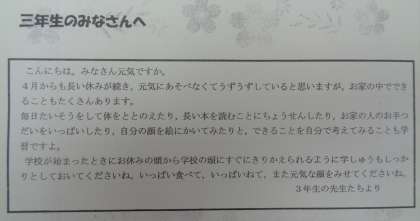 三年生のみなさんへ
こんにちは。みなさん元気ですか。
４月からも長い休みが続き、元気にあそべなくてうずうずしていると思いますが、お家の中でできることもたくさんあります。
毎日たいそうをして体をととのえたり、長い本を読むことにちょうせんしたり、お家の人のお手つだいをいっぱいしたり、自分の顔を絵にかいてみたりと、できることを自分で考えてみることも学習ですよ。
学校が始まったときにお休みの頭から学校の頭にすぐにきりかえられるように学しゅうもしっかりとしておいてくださいね。いっぱい食べて、いっぱいねて、また元気な顔をみせてくださいね。
３年生の先生たちより